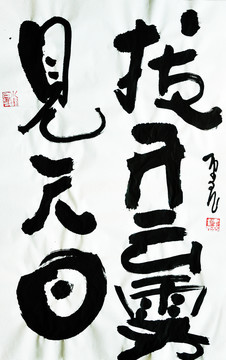 拨开云雾
見天日